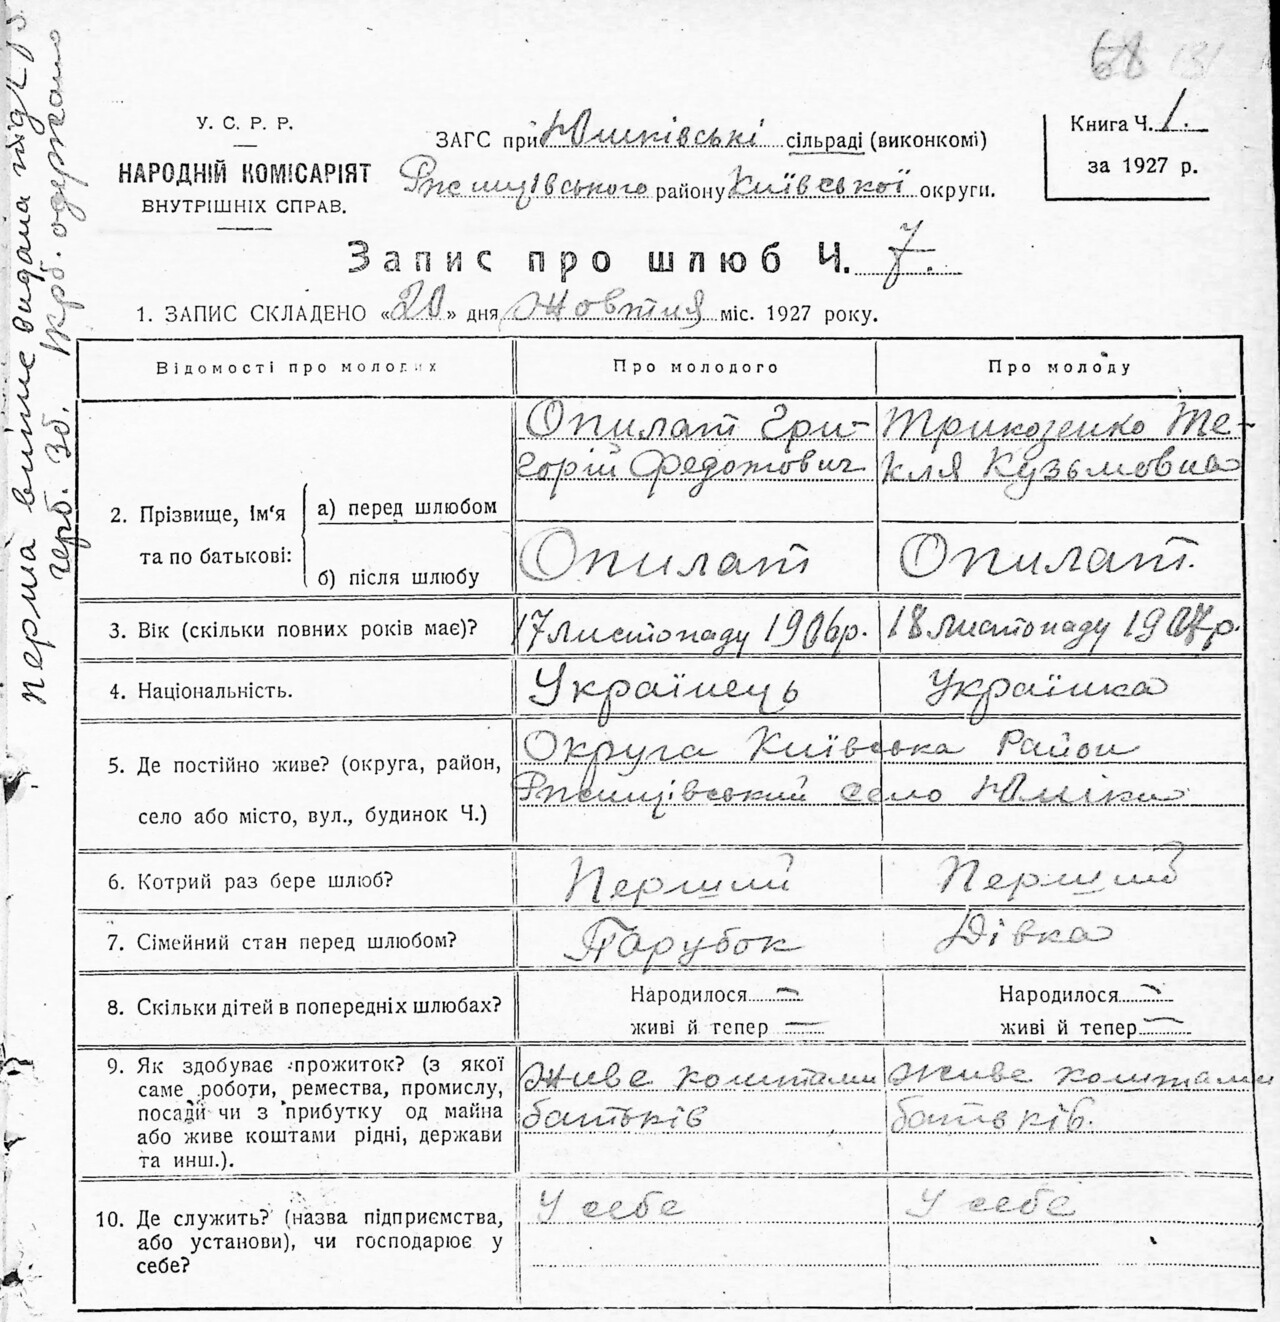 68 131
У. С. Р. Р.
НАРОДНІЙ КОМІСАРІЯТ
ВНУТРІШНІХ СПРАВ.
ЗАГС при Юшківські сільраді (виконкомі)
Ржищівського району Київської округи.
Книга Ч. 1.
за 1927 р.
Запис про шлюб Ч. 7.
1. ЗАПИС СКЛАДЕНО «20» дня Жовтня міс. 1927 року.
Відомості про молодих
Про молодого
Про молоду
2. Прізвище, Ім'я
та по батькові:
а) перед шлюбом
Опилат Гри-
горій Федотович
Трикозенко Те-
кля Кузьмовна
б) після шлюбу
Опилат
Опилат.
3. Вік (скільки повних років має)?
17 листопаду 1906р.
18 листопаду 1907р.
4. Національність.
Українець
Українка
5. Де постійно живе? (округа, район,
село або місто, вул., будинок Ч.)
Округа Київська Район
Ржищівський село Юшки
6. Котрий раз бере шлюб?
Перший
Перший
7. Сімейний стан перед шлюбом?
Парубок
Дівка
8. Скільки дітей в попередніх шлюбах?
Народилося —
живі й тепер —
Народилося —
живі й тепер —
9. Як здобуває прожиток? (з якої
саме роботи, ремества, промислу,
посади чи з прибутку од майна
або живе коштами рідні, держави
та инш.).
Живе коштами
батьків
Живе коштами
батьків.
10. Де служить? (назва підприємства,
або установи), чи господарює у
себе?
У себе
У себе
перша випис видана під
герб. зб. 1крб. одержано